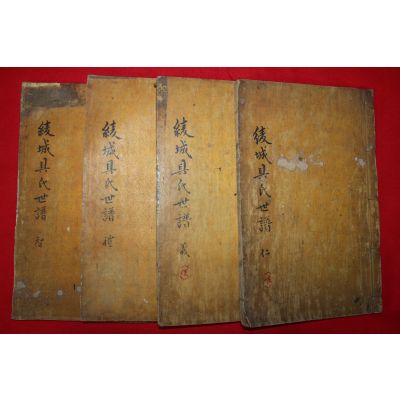 綾城具氏世譜 仁
綾城具氏世譜 義
綾城具氏世譜 禮
綾城具氏世譜 智